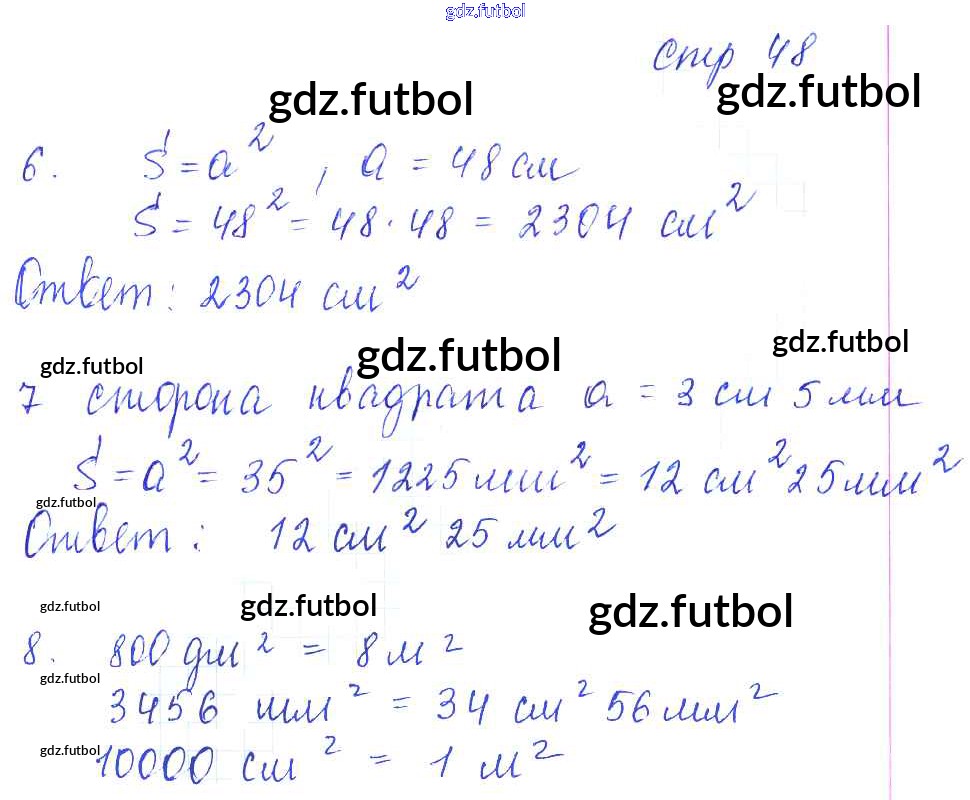 gdz.futbol
стр 48
gdz.futbol gdz.futbol
6. S = a², a = 48 см
S = 48² = 48 · 48 = 2304 см²
Ответ: 2304 см²
gdz.futbol gdz.futbol gdz.futbol
7 сторона квадрата a = 3 см 5 мм
S = a² = 35² = 1225 мм² = 12 см² 25 мм²
gdz.futbol
Ответ: 12 см² 25 мм²
gdz.futbol gdz.futbol gdz.futbol
8. 800 дм² = 8 м²
gdz.futbol
3456 мм² = 34 см² 56 мм²
gdz.futbol
10000 см² = 1 м²